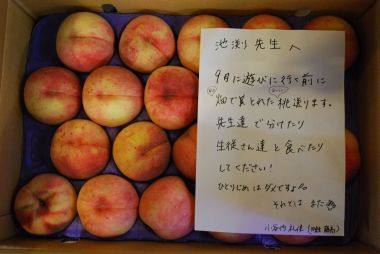 池渕先生へ
9月に遊びに行く前に
畑で とれた桃送ります。
先生達で分けたり
生徒さん達と食べたり
してください!
ひとりじめはダメですよ
それでは また